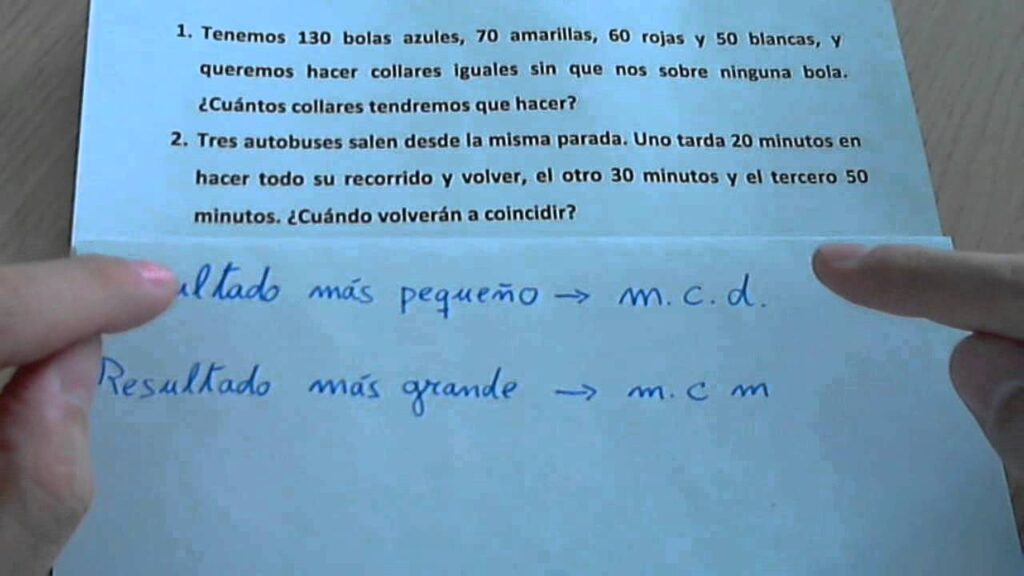 1. Tenemos 130 bolas azules, 70 amarillas, 60 rojas y 50 blancas, y
queremos hacer collares iguales sin que nos sobre ninguna bola.
¿Cuántos collares tendremos que hacer?
2. Tres autobuses salen desde la misma parada. Uno tarda 20 minutos en
hacer todo su recorrido y volver, el otro 30 minutos y el tercero 50
minutos. ¿Cuándo volverán a coincidir?
ultado más pequeño → m.c.d.
Resultado más grande → m.c m